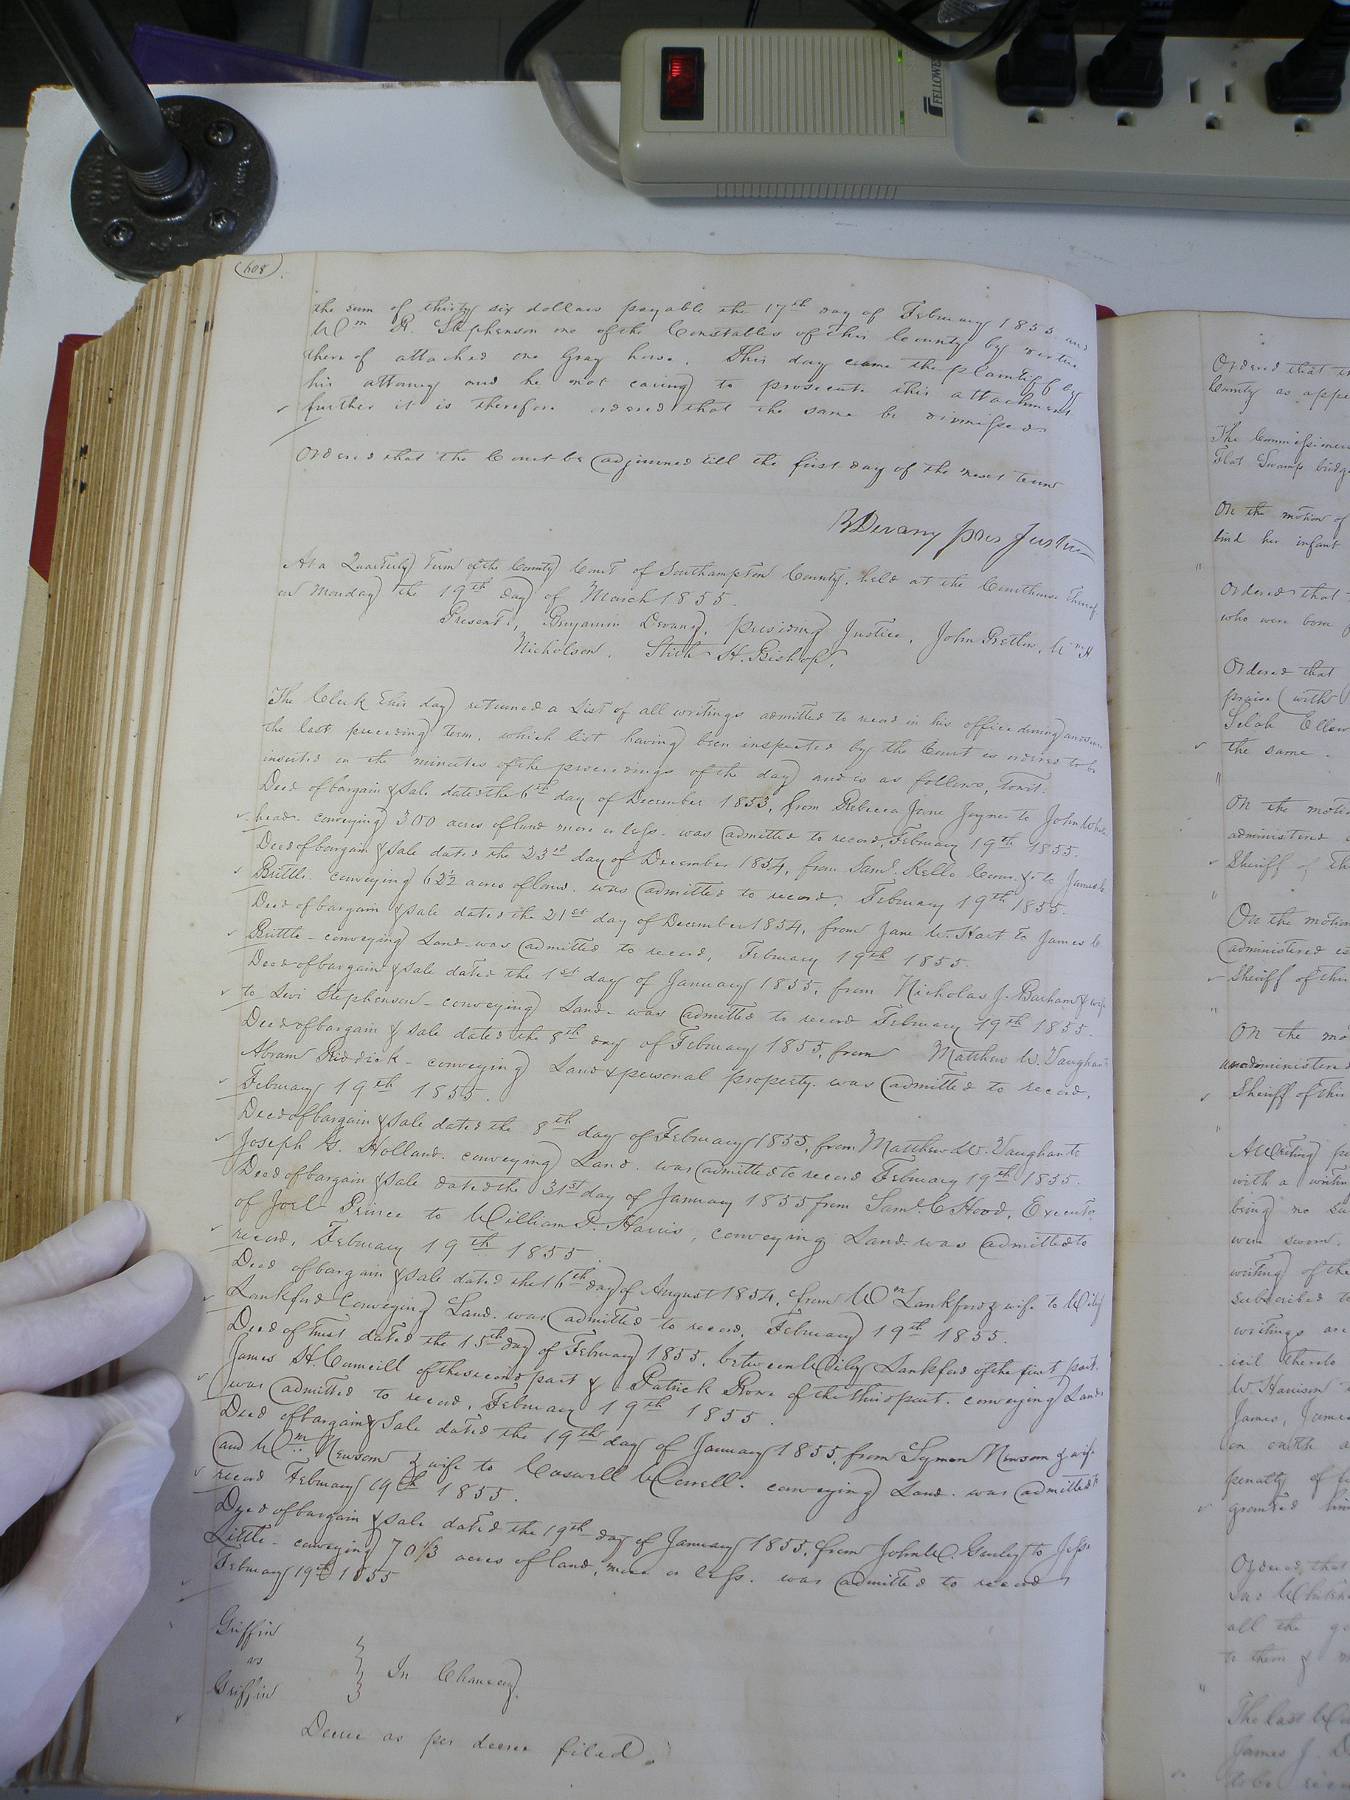 FELLOWES
608
the sum of thirty six dollars payable the 17th day of February 1855 and
Wm R. Stephenson one of the Constables of this County by virtue
thereof attached one Gray horse. This day came the plaintiff by
his attorney and he not caring to prosecute this attachment
further it is therefore ordered that the same be dismissed.
Ordered that the Court be adjourned till the first day of the next term
B Devany pres Justice
At a Quarterly Term of the County Court of Southampton County, held at the Courthouse thereof
on Monday the 19th day of March 1855.
Present, Benjamin Devany, presiding Justice, John Pretlow, Wm H
Nicholson, Stith H. Bishop.
The Clerk this day returned a List of all writings admitted to record in his office during and since
the last preceding term, which list having been inspected by the Court is ordered to be
inserted in the minutes of the proceedings of the day and is as follows, towit:
Deed of bargain & sale dated the 6th day of December 1853, from Rebecca Jane Joyner to John White
head conveying 300 acres of land more or less. was admitted to record, February 19th 1855.
Deed of bargain & sale dated the 23rd day of December 1854, from Saml. Kello Comr. &c to James C
Brittle conveying 62½ acres of land. was admitted to record, February 19th 1855.
Deed of bargain & sale dated the 21st day of December 1854, from Jane W. Hart to James C
Brittle - conveying Land - was admitted to record, February 19th 1855.
Deed of bargain & sale dated the 1st day of January 1855, from Nicholas J. Barham & wife
to Levi Stephenson - conveying Land - was admitted to record February 19th 1855.
Deed of bargain & sale dated the 8th day of February 1855, from Matthew W. Vaughan to
Abram Riddick - conveying Land & personal property. was admitted to record,
February 19th 1855.
Deed of bargain & sale dated the 8th day of February 1855, from Matthew W. Vaughan to
Joseph G. Holland. conveying Land. was admitted to record February 19th 1855.
Deed of bargain & sale dated the 31st day of January 1855 from Saml. C Hood, Executor
of Joel Prince to William P. Harris, conveying Land. was admitted to
record, February 19th 1855.
Deed of bargain & sale dated the 16th day of August 1854, from Wm Lankford & wife to Wiley
Lankford conveying Land. was admitted to record, February 19th 1855.
Deed of trust dated the 15th day of February 1855, between Wiley Lankford of the first part,
James H. Councill of the second part & Patrick Rowe of the third part. conveying Land
was admitted to record, February 19th 1855.
Deed of bargain & sale dated the 19th day of January 1855, from Lyman Newsom & wife
and Wm Newsom & wife to Caswell Worrell. conveying Land. was admitted to
record February 19th 1855.
Deed of bargain & sale dated the 19th day of January 1855, from John W. Gurley to Jesse
Little - conveying 70 1/3 acres of land, more or less. was admitted to record
February 19th 1855
Griffin
vs } In Chancery.
Griffin
Decree as per decree filed.
Ordered that
County as appe
The Commissioner
Flat Swamp bridge
On the motion of
bind his infant
Ordered that
who were born
Ordered that
praise (with
Selah Ellen
the same.
On the motion
administered
Sheriff of th
On the motion
administered es
Sheriff of this
On the mo
administered
Sheriff of this
A Writing pu
with a
being no su
were sworn.
writing of the
subscribed to
writings are
will thereto
W. Harrison
James, James
in oath a
penalty of
granted him
Ordered, that
all the
to them &
The last Wi
James J. D
to be